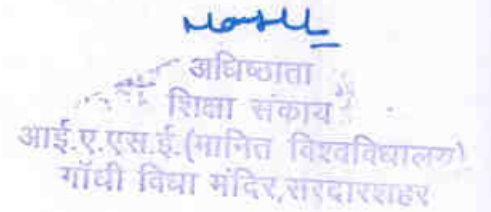 अधिष्ठाता
शिक्षा संकाय
आई.ए.एस.ई.(मानित विश्वविद्यालय)
गाँधी विधा मंदिर,सरदारशहर